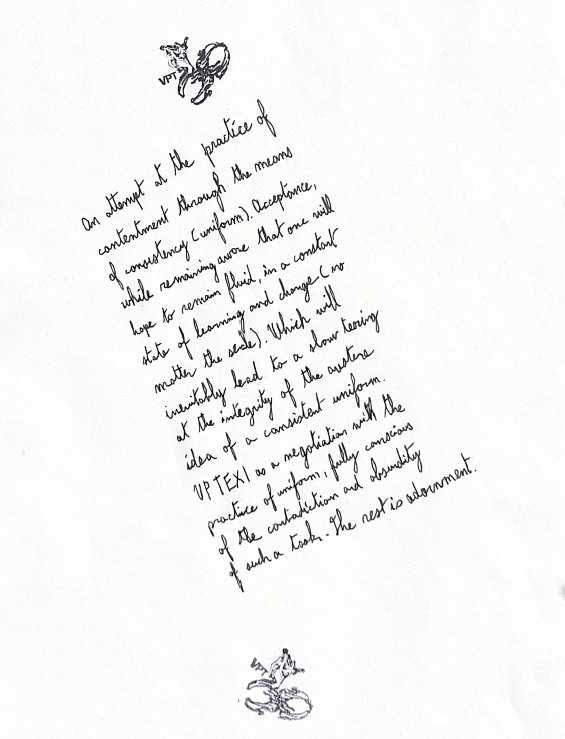 VPT
an attempt at the practice of
contentment through the means
of consistency (uniform). Acceptance,
while remaining aware that one will
hope to remain fluid, in a constant
state of learning and change (no
matter the scale). Which will
inevitably lead to a slow tearing
at the integrity of the austere
idea of a consistent uniform.
VPTEX1 as a negotiation with the
practice of uniform, fully conscious
of the contradiction and absurdity
of such a task. The rest is adornment.
VPT